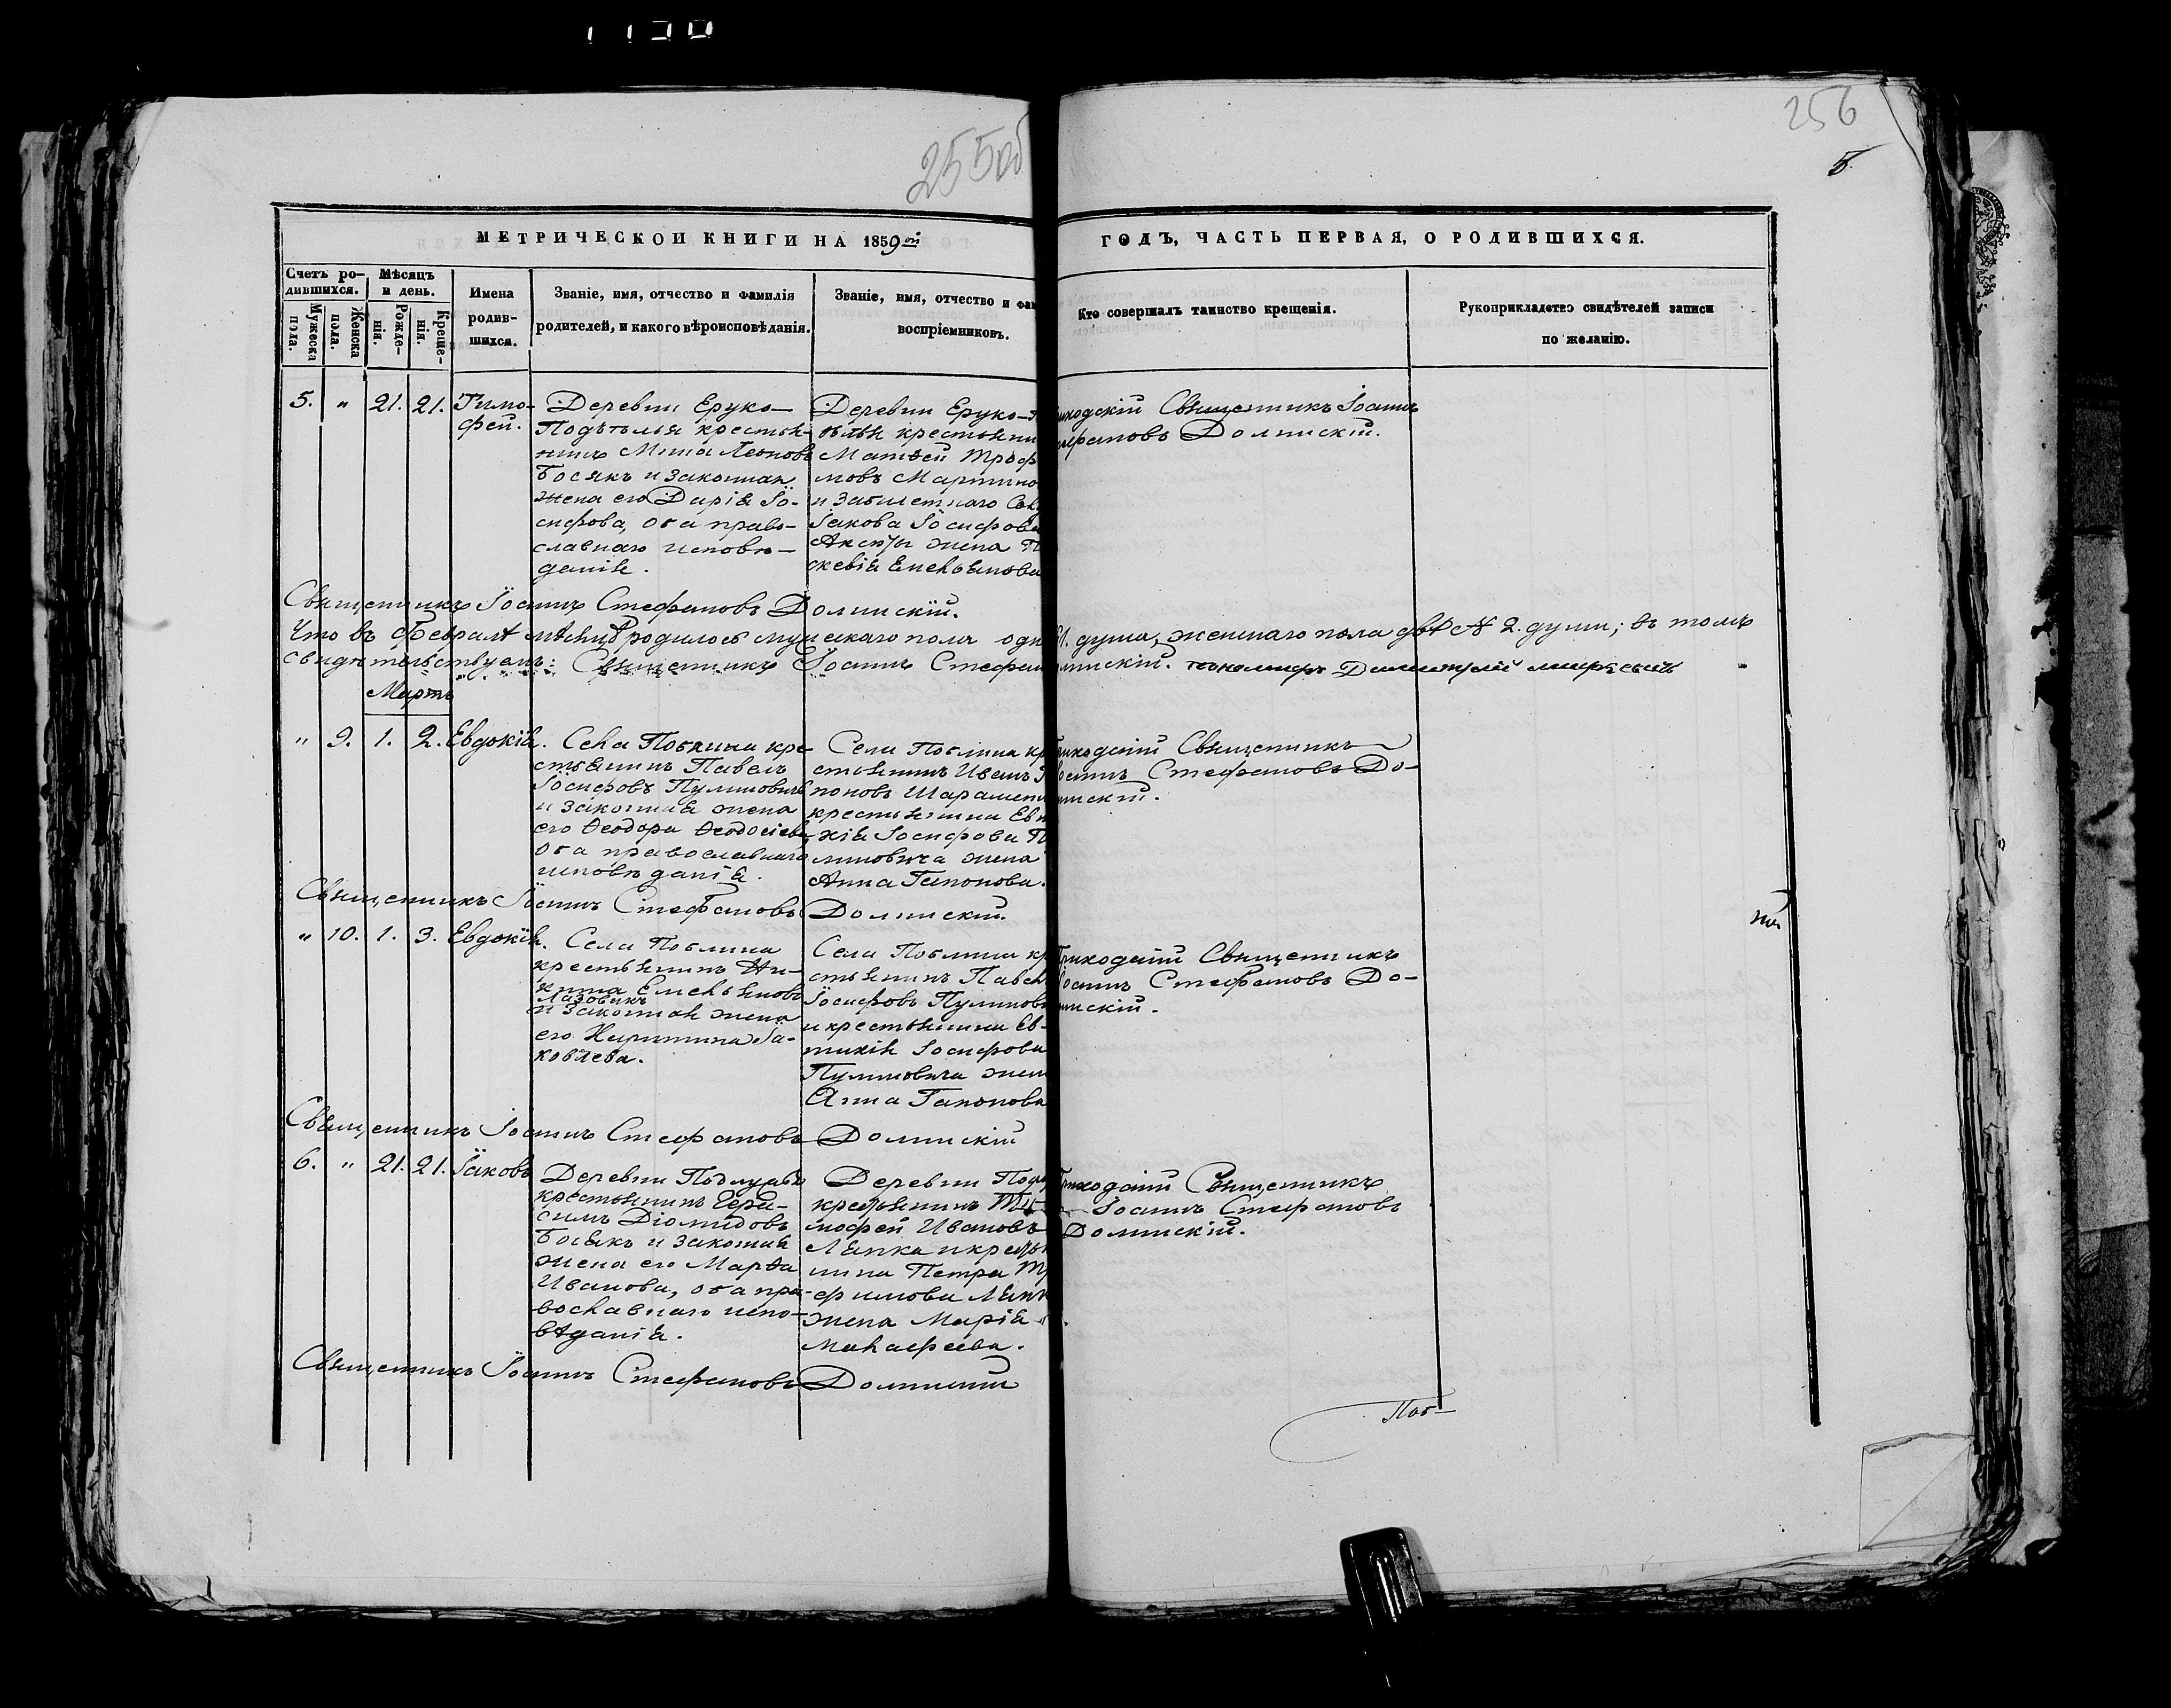 255об
256
5.
МЕТРИЧЕСКОЙ КНИГИ НА 1859й
ГОДЪ, ЧАСТЬ ПЕРВАЯ, О РОДИВШИХСЯ.
Счетъ родившихся.
Мужеска пола.
Женска пола.
Мѣсяцъ и день.
Рожденія.
Крещенія.
Имена родившихся.
Званіе, имя, отчество и фамилія
родителей, и какого вѣроисповѣданія.
Званіе, имя, отчество и фам
воспріемниковъ.
Кто совершалъ таинство крещенія.
Рукоприкладство свидѣтелей записи
по желанію.
5. " 21. 21. Тимо-
фей.
Деревни Еруко-
крестья-
нинъ Мина Леоновъ
Босякъ и законная
жена его Дарія Іо-
сифова, оба право-
славнаго исповѣ-
данія.
Деревни Еруко-
крестьянинъ
Матѳей Троф
мовъ
и
Іакова Іосифова
жена
Емельянова
Приходскій Священникъ Іоаннъ
Стефановъ Долинскій.
Священникъ Іоаннъ Стефановъ Долинскій.
Что въ Февралѣ мѣсяцѣ родилось мужескаго пола одн 1. душа, женскаго пола двѣ № 2. души; въ томъ
свидѣтельствуемъ: Священникъ Іоаннъ Стефан линскій. Димитрій
Мартъ
" 9. 1. 2. Евдокія.
Села кре-
стьянинъ Павелъ
Іосифовъ Пулиновичъ
и законная жена
его Ѳеодора Ѳеодосіева,
оба православнаго
исповѣданія.
Села кр
стьянинъ Иванъ
поновъ
крестьянина Евти
хія Іосифова П
линовича жена
Анна Гапонова.
Приходскій Священникъ
Іоаннъ Стефановъ До-
линскій.
Священникъ Іоаннъ Стефановъ Долинскій.
" 10. 1. 3. Евдокія.
Села
крестьянинъ Ни-
кита Емельяновъ
Лазовикъ
и законная жена
его Харитина Іа-
ковлева.
Села кр
стьянинъ Павелъ
Іосифовъ Пулинов
и крестьянина Ев-
тихія Іосифова
Пулиновича жен
Анна Гапонова
Приходскій Священникъ
Іоаннъ Стефановъ До-
линскій.
Священникъ Іоаннъ Стефановъ Долинскій
6. " 21. 21. Іаковъ
Деревни
крестьянинъ Гера-
симъ Діомидовъ
Босякъ и законная
жена его Марѳа
Иванова, оба пра-
вославнаго испо-
вѣданія.
Деревни
крестьянинъ Ти-
мофей Ивановъ
Ляпка и крестья
нина Петра Тр
фимова Ляпк
жена Марія
Малафеева.
Приходскій Священникъ
Іоаннъ Стефановъ
Долинскій.
Священникъ Іоаннъ Стефановъ Долинскій